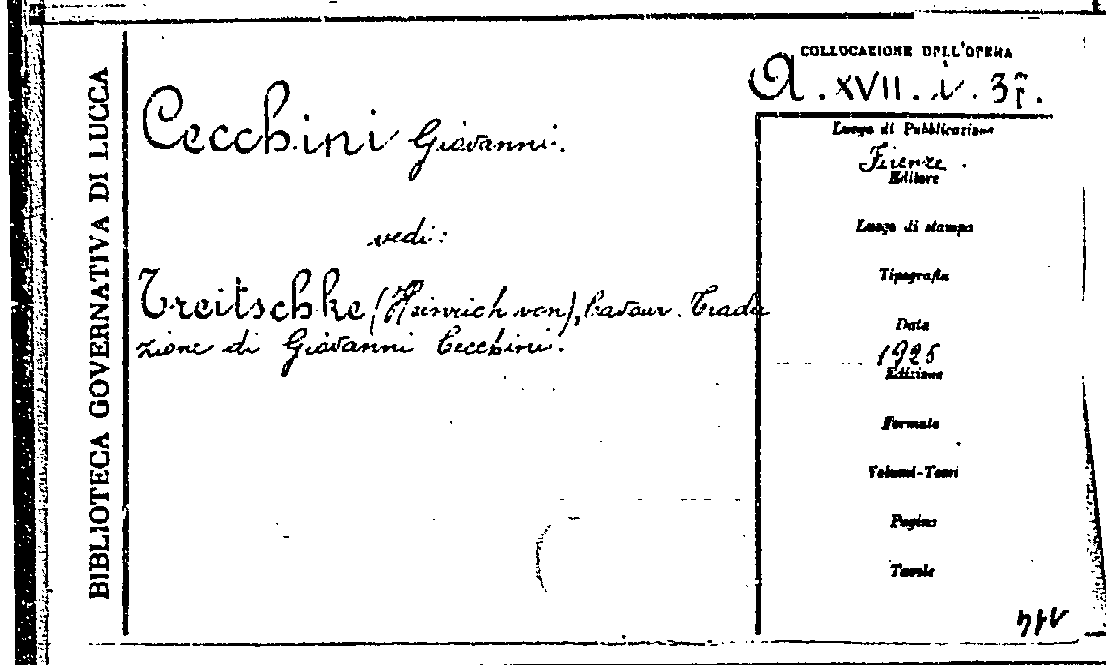 BIBLIOTECA GOVERNATIVA DI LUCCA
COLLOCAZIONE DELL'OPERA
A. XVII. i.
Cecchini Giovanni.
vedi:
Treitschke (Heinrich von), Cavour. Tradu
zione di Giovanni Cecchini.
Luogo di Pubblicazione
Firenze.
Editore
Luogo di stampa
Tipografia
Data
1925
Edizione
Formato
Volumi-Tomi
Pagine
Tavole